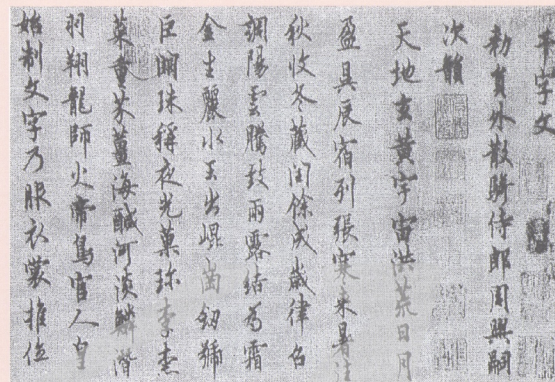 千字文
勅員外散騎侍郎周興嗣
次韻
天地玄黃宇宙洪荒日月
盈昃辰宿列張寒来暑往
秋收冬藏閏餘成歲律呂
調陽雲騰致雨露結為霜
金生麗水玉出崐崗劒號
巨闕珠稱夜光菓珍李柰
菜重芥薑海鹹河淡鱗潛
羽翔龍師火帝鳥官人皇
始制文字乃服衣裳推位